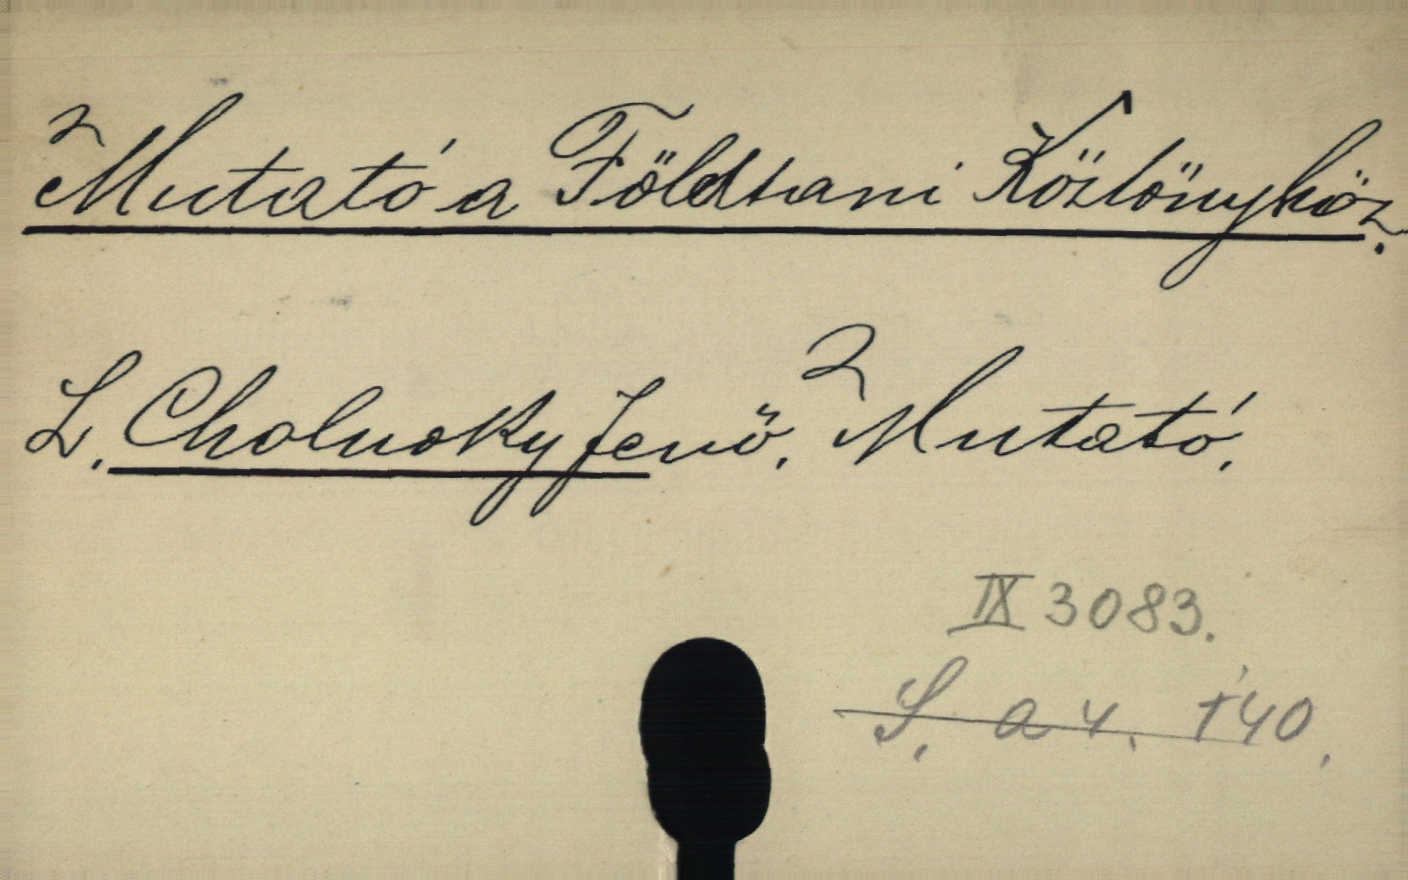 Mutató a Földtani Közlönyhöz.
L. Cholnoky Jenő. Mutató.
IX 3083.
S. a 4. 140.